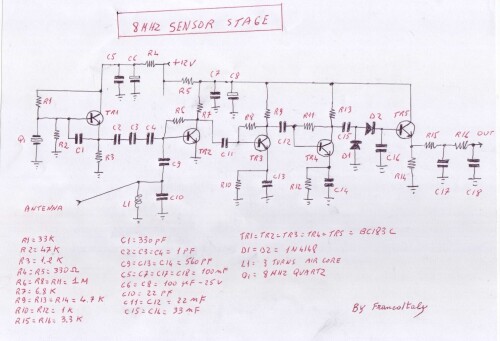 8MHZ SENSOR STAGE
C5 C6 R4 +12V
R5 C7 C8
R1 TR1 R6 R7 R8 R9 R11 R13 D2 TR5
Q1 R2 C1 C2 C3 C4 TR2 C11 TR3 C12 TR4 C15 D1 C16 R15 R16 OUT
R3 C9 R10 C13 R12 C14 R14 C17 C18
ANTENNA L1 C10
R1=33K
R2=47K
R3=1,2K
R4=R5=330Ω
R6=R8=R11=1M
R7=6.8K
R9=R13=R14=4.7K
R10=R12=1K
R15=R16=3.3K
C1=330PF
C2=C3=C4=1PF
C9=C13=C14=560PF
C5=C7=C17=C18=100mF
C6=C8=100µF-25V
C10=22PF
C11=C12=22mF
C15=C16=33mF
TR1=TR2=TR3=TR4=TR5=BC183C
D1=D2=1N4148
L1=3 TURNS AIR CORE
Q1=8MHZ QUARTZ
By FrancoItaly